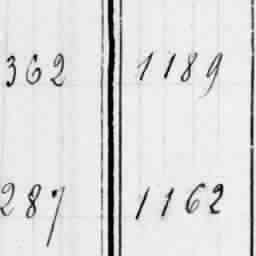 362 1189
287 1162